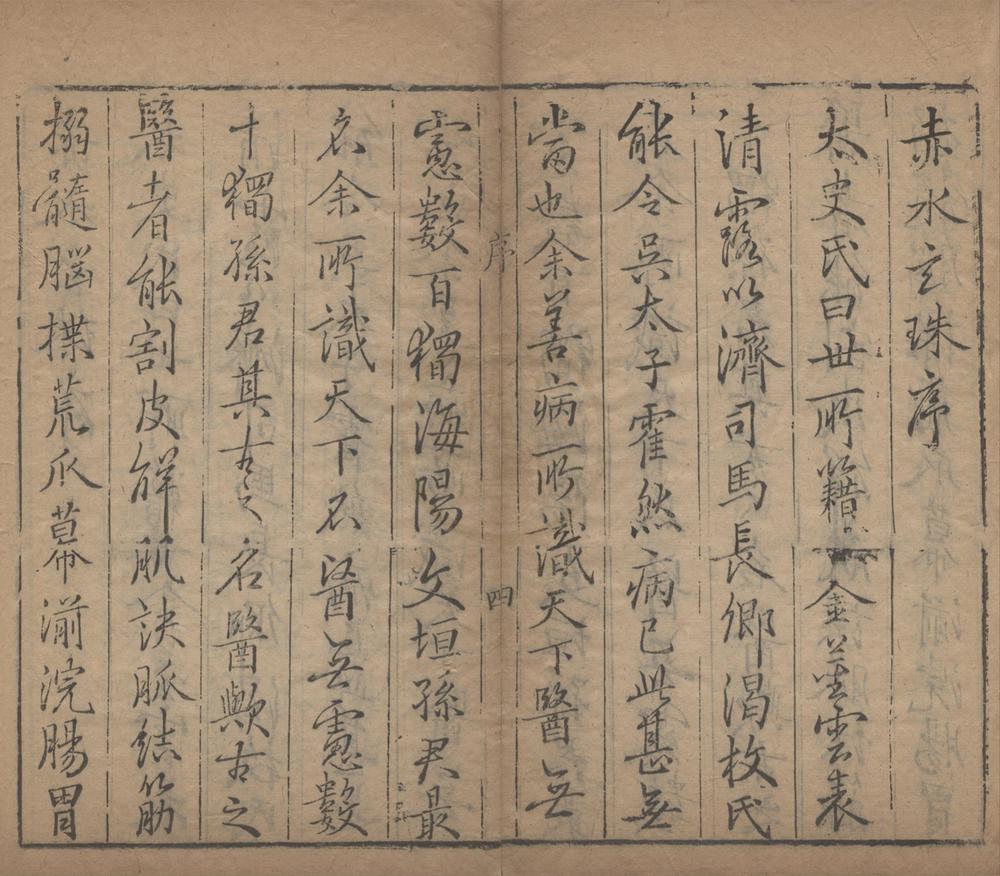 赤水玄珠序
太史氏曰世所籍金莖雲表
清露以濟司馬長卿渴枚氏
能令吳太子霍然病已此甚無
當也余善病所識天下醫無
序 四
慮數百獨海陽文垣孫君最
名余所識天下名醫無慮數
十獨孫君其古之名醫歟古之
醫者能割皮解肌訣脈結筋
搦髓腦揲荒爪幕湔浣腸胃